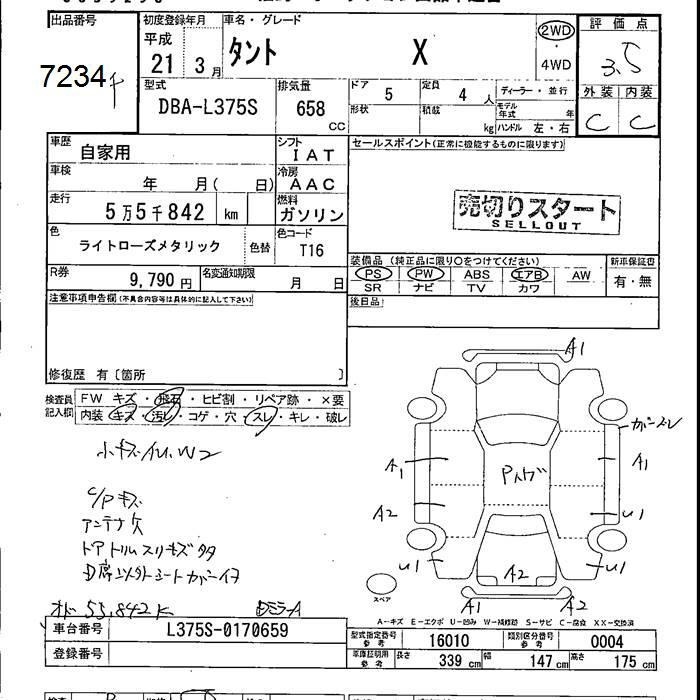 出品番号
7234
初度登録年月
平成
21 3月
車名・グレード
タント X
2WD
4WD
評価点
3.5
外装 内装
C C
型式
DBA-L375S
排気量
658
CC
ドア
5
定員
4 人
形状
積載
kg
ディーラー・並行
モデル年式 年
ハンドル 左・右
車歴
自家用
シフト
IAT
車検
年 月( 日)
冷房
AAC
走行
5万5千842 km
燃料
ガソリン
色
ライトローズメタリック
色替
色コード
T16
R券
9,790 円
名変通知期限
月 日
セールスポイント(正常に機能するものに限ります)
売切りスタート
SELLOUT
装備品(純正品に限り○をつけてください)
新車保証書
PS PW ABS エアB AW
SR ナビ TV カワ
有・無
後日品
注意事項申告欄(不具合内容等は具体的に記入して下さい)
修復歴 有〔箇所 〕
検査員記入欄
FW キズ・飛石・ヒビ割・リペア跡・×要
内装 キズ・汚レ・コゲ・穴・スレ・キレ・破レ
小キズAU.W2
C/Pキズ
アンテナ欠
ドアトリムスリキズ多
D席以外シートカバーイヌ
オド 55,842K
A1
ガリースレ
A1
A1
Pハゲ
A2
U1
U1
U1
A2
スペア
A1
A2
A-キズ E-エクボ U-凹み W-補修跡 S-サビ C-腐食 XX-交換済
車台番号
L375S-0170659
登録番号
型式指定番号参考
16010
類別区分番号参考
0004
車庫証明用参考
長さ 339 cm
幅 147 cm
高さ 175 cm